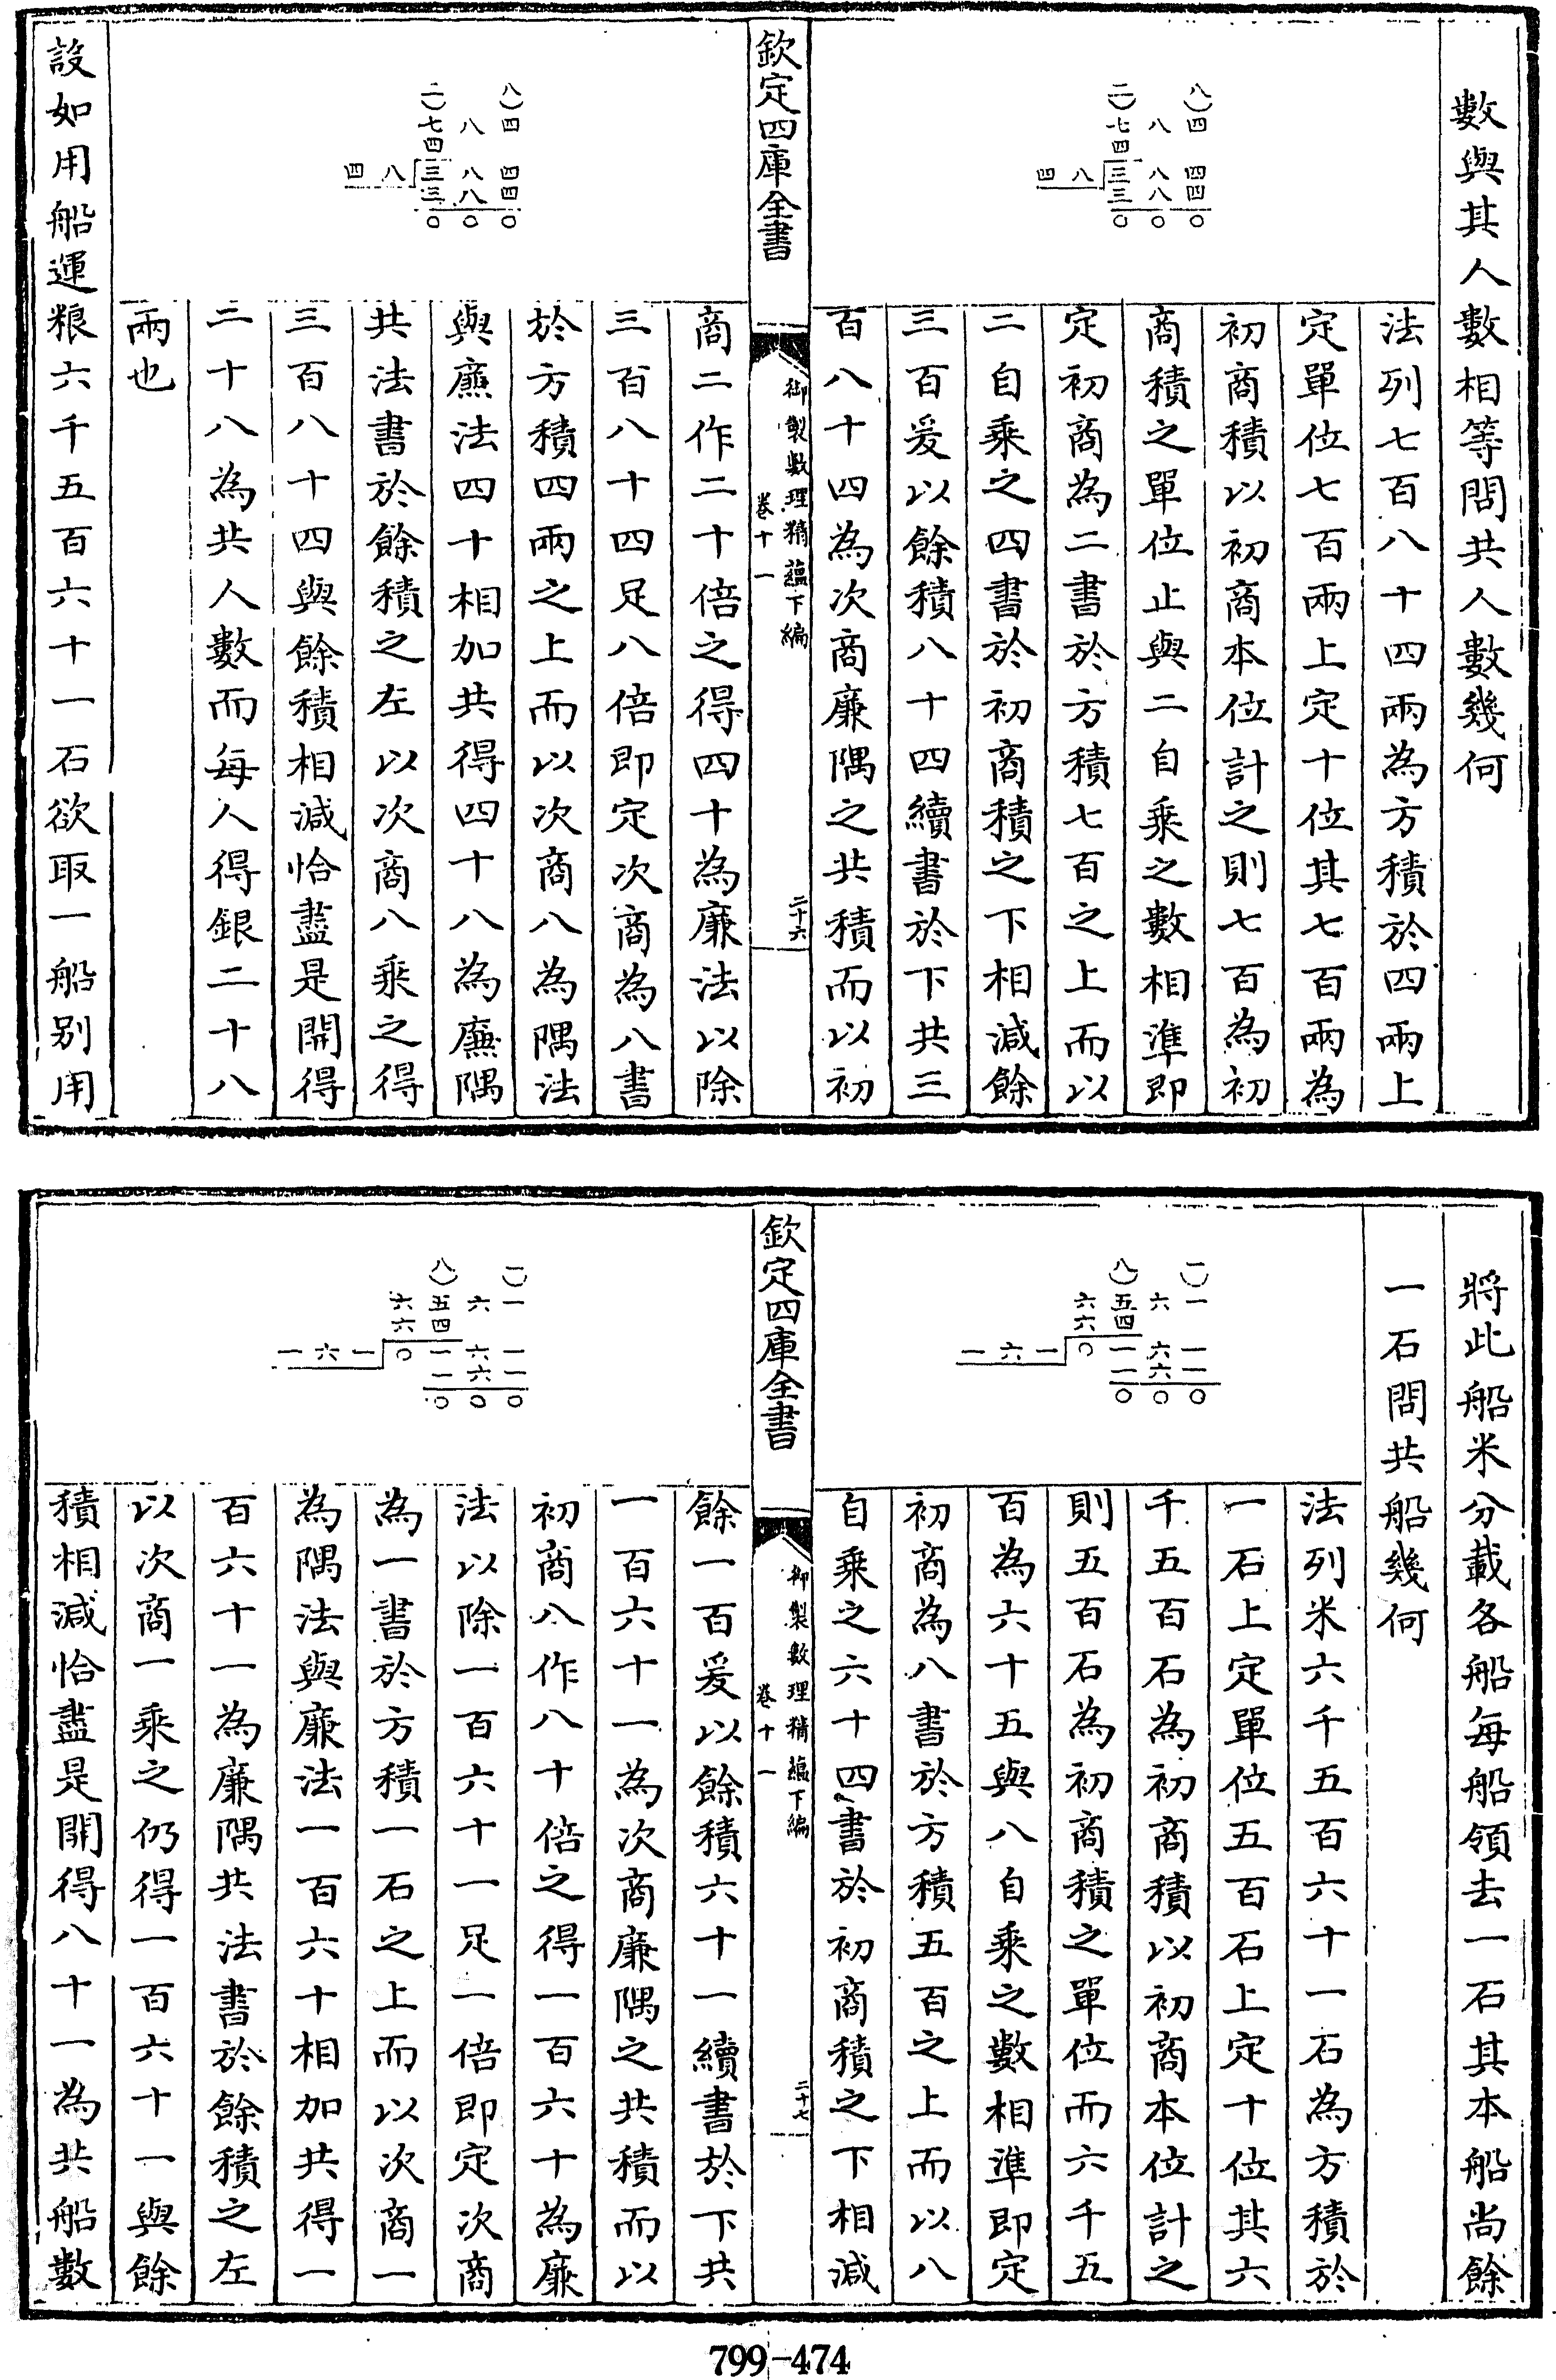 數與其人數相等問共人數幾何
八)四 四四〇
八 八八〇
二)七四三三〇
八
四
法列七百八十四兩為方積於四兩上
定單位七百兩上定十位其七百兩為
初商積以初商本位計之則七百為初
商積之單位止與二自乘之數相準即
定初商為二書於方積七百之上而以
二自乘之四書於初商積之下相減餘
三百爰以餘積八十四續書於下共三
百八十四為次商廉隅之共積而以初
欽定四庫全書
御製數理精蘊下編
卷十一
二十六
八)四 四四〇
八 八八〇
二)七四三三〇
八
四
商二作二十倍之得四十為廉法以除
三百八十四足八倍即定次商為八書
於方積四兩之上而以次商八為隅法
與廉法四十相加共得四十八為廉隅
共法書於餘積之左以次商八乘之得
三百八十四與餘積相減恰盡是開得
二十八為共人數而每人得銀二十八
兩也
設如用船運粮六千五百六十一石欲取一船别用
將此船米分載各船每船領去一石其本船尚餘
一石問共船幾何
一)一 一一〇
六 六六〇
八)五四一一〇
六六〇
一
六
一
法列米六千五百六十一石為方積於
一石上定單位五百石上定十位其六
千五百石為初商積以初商本位計之
則五百石為初商積之單位而六千五
百為六十五與八自乘之數相準即定
初商為八書於方積五百之上而以八
自乘之六十四書於初商積之下相減
欽定四庫全書
御製數理精蘊下編
卷十一
二十七
一)一 一一〇
六 六六〇
八)五四一一〇
六六〇
一
六
一
餘一百爰以餘積六十一續書於下共
一百六十一為次商廉隅之共積而以
初商八作八十倍之得一百六十為廉
法以除一百六十一足一倍即定次商
為一書於方積一石之上而以次商一
為隅法與廉法一百六十相加共得一
百六十一為廉隅共法書於餘積之左
以次商一乘之仍得一百六十一與餘
積相減恰盡是開得八十一為共船數
799-474